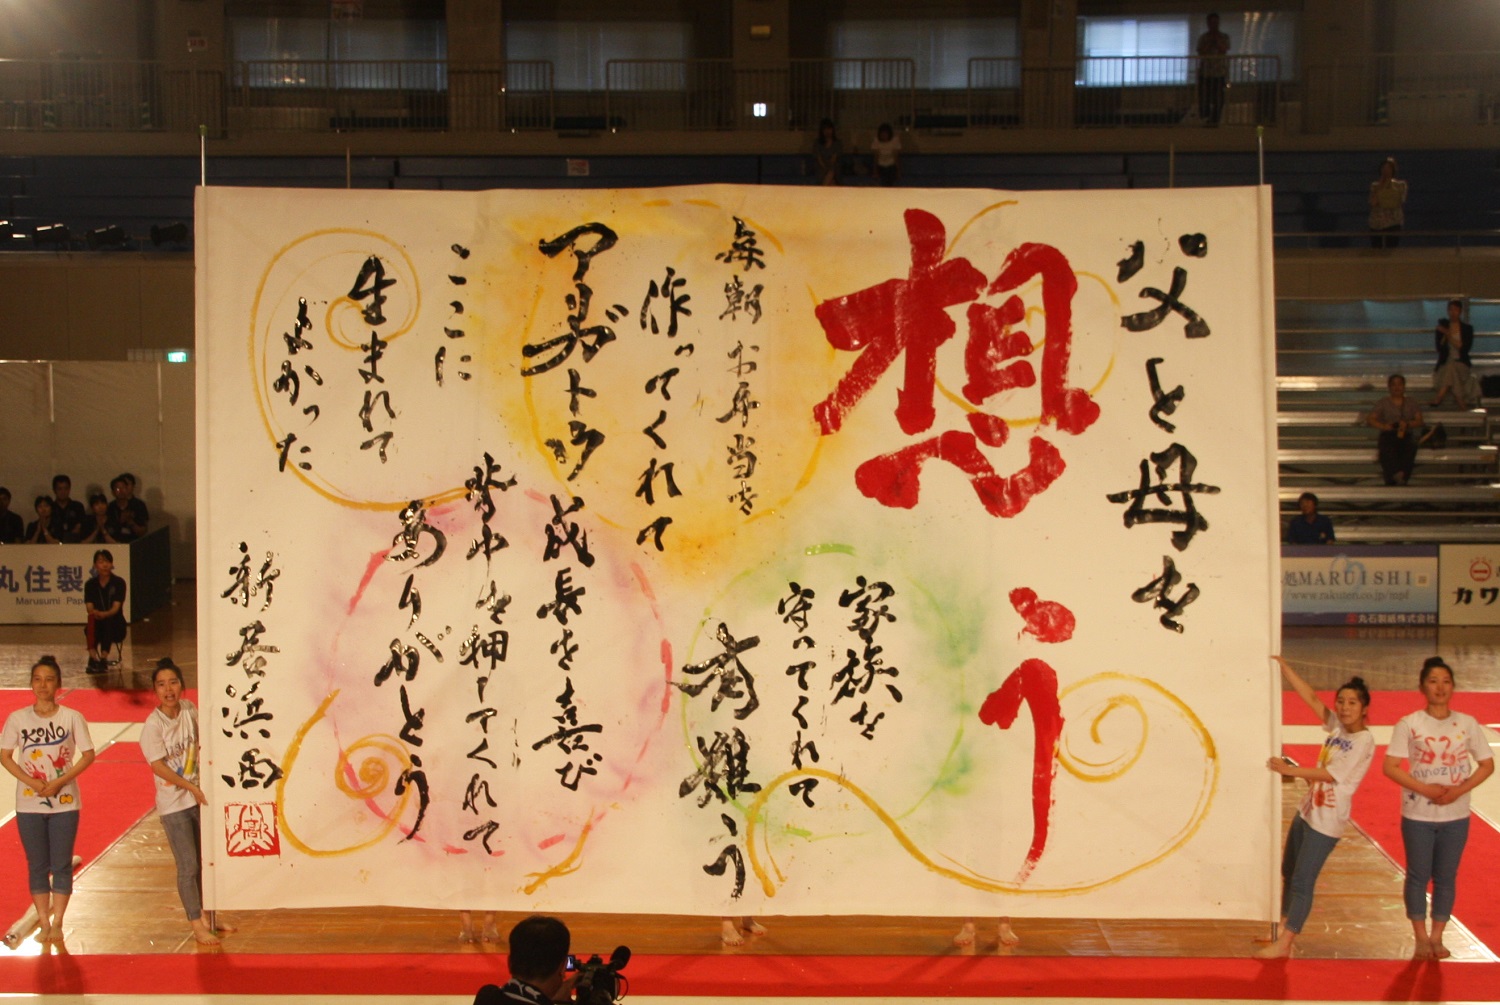 父と母を
想う
家族を
守ってくれて
有難う
毎朝お弁当を
作ってくれて
アリガトウ
成長を喜び
背中を押してくれて
ありがとう
ここに
生まれて
よかった
新居浜西
丸住製
Marusumi Pape
処MARUISHI
www.rakuten.co.jp/mpf
丸石製紙株式会社
カワ
KONO